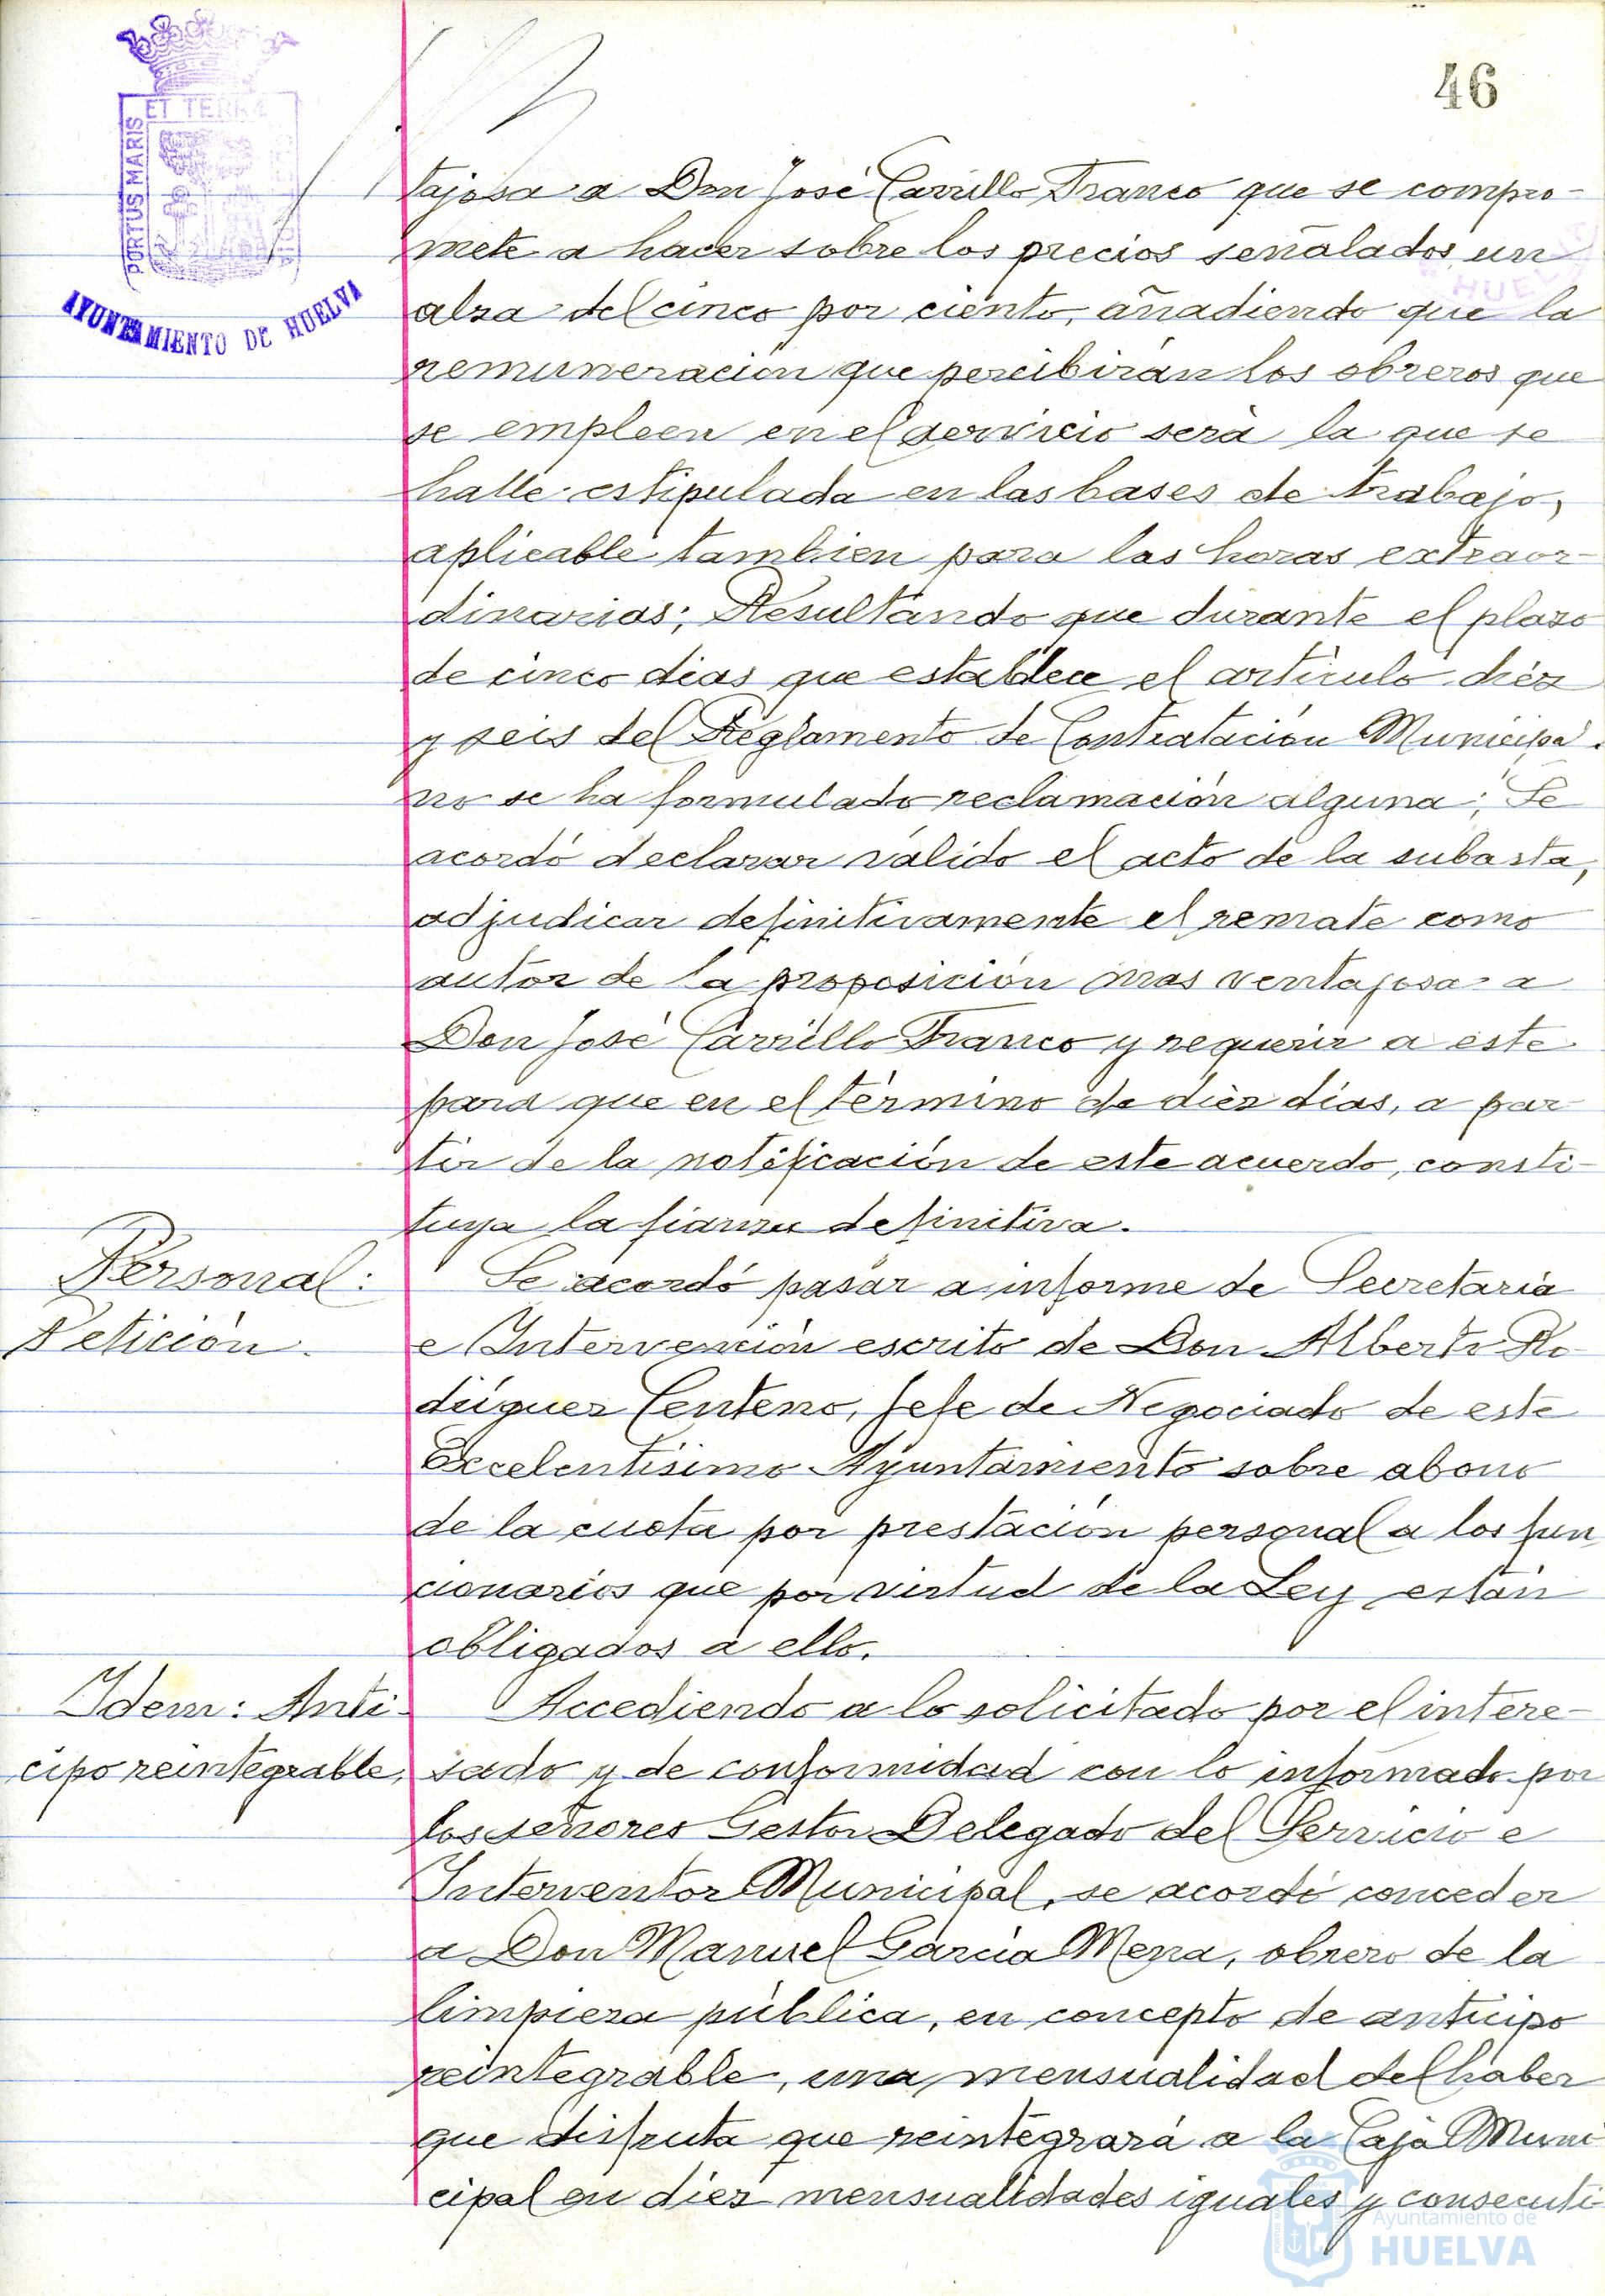 46
ET TERRÆ
PORTUS MARIS
AYUNTAMIENTO DE HUELVA
tajosa a Don José Carrillo Franco que se compro-
mete a hacer sobre los precios señalados un
alza del cinco por ciento, añadiendo que la
remuneración que percibirán los obreros que
se empleen en el servicio será la que se
halle estipulada en las bases de trabajo,
aplicable tambien para las horas extraor-
dinarias; Resultando que durante el plazo
de cinco dias que establece el artículo diéz
y seis del Reglamento de Contratación Municipal.
no se ha formulado reclamación alguna; Se
acordó declarar válido el acto de la subasta,
adjudicar definitivamente el remate como
autor de la proposición mas ventajosa a
Don José Carrillo Franco y requerir a este
para que en el término de diéz dias, a par-
tir de la notificación de este acuerdo, consti-
tuya la fianza definitiva.
Personal:
Petición.
Se acordó pasar a informe de Secretaría
e Intervención escrito de Don Alberto Ro-
driguez Centeno, Jefe de Negociado de este
Excelentísimo Ayuntamiento sobre abono
de la cuota por prestación personal a los fun
cionarios que por virtud de la Ley están
obligados a ello.
Idem: Anti-
cipo reintegrable.
Accediendo a lo solicitado por el intere-
sado y de conformidad con lo informado por
los señores Gestor Delegado del Servicio e
Interventor Municipal, se acordó conceder
a Don Manuel García Mena, obrero de la
limpieza pública, en concepto de anticipo
reintegrable, una mensualidad del haber
que disfruta que reintegrará a la Caja Muni
cipal en diez mensualidades iguales y consecuti-
Ayuntamiento de
HUELVA